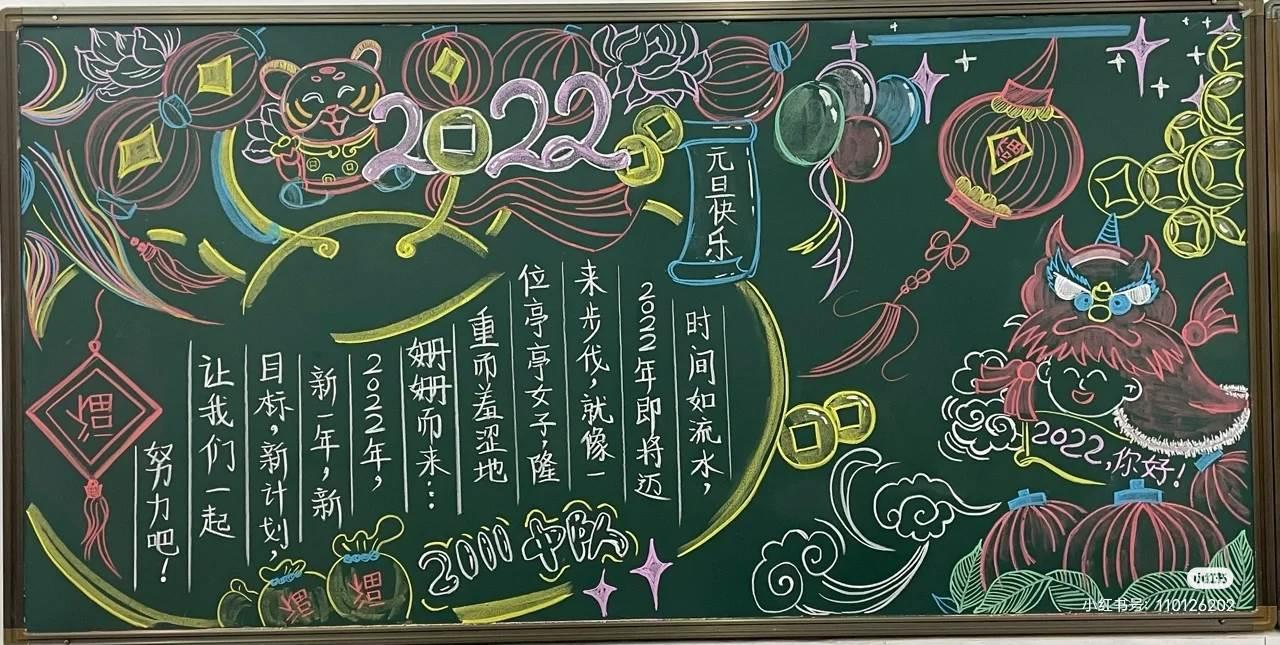 2022
元旦快乐
时间如流水，
2022年即将迈
来步伐，就像一
位亭亭女子，隆
重而羞涩地
姗姗而来…
2022年，
新一年，新
目标，新计划，
让我们一起
努力吧！
福
福
2022，你好！
2011中队
福
福
小红书
小红书号：110126202